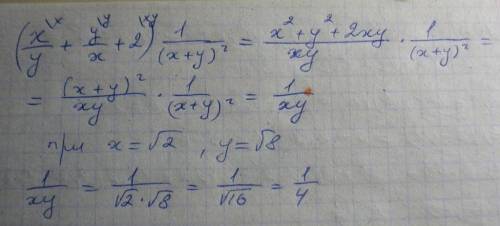 (x/y \x + y/x \y + 2 \xy) 1/(x+y)² = x²+y²+2xy/xy · 1/(x+y)² =
= (x+y)²/xy · 1/(x+y)² = 1/xy
при x = √2 , y = √8
1/xy = 1/√2·√8 = 1/√16 = 1/4